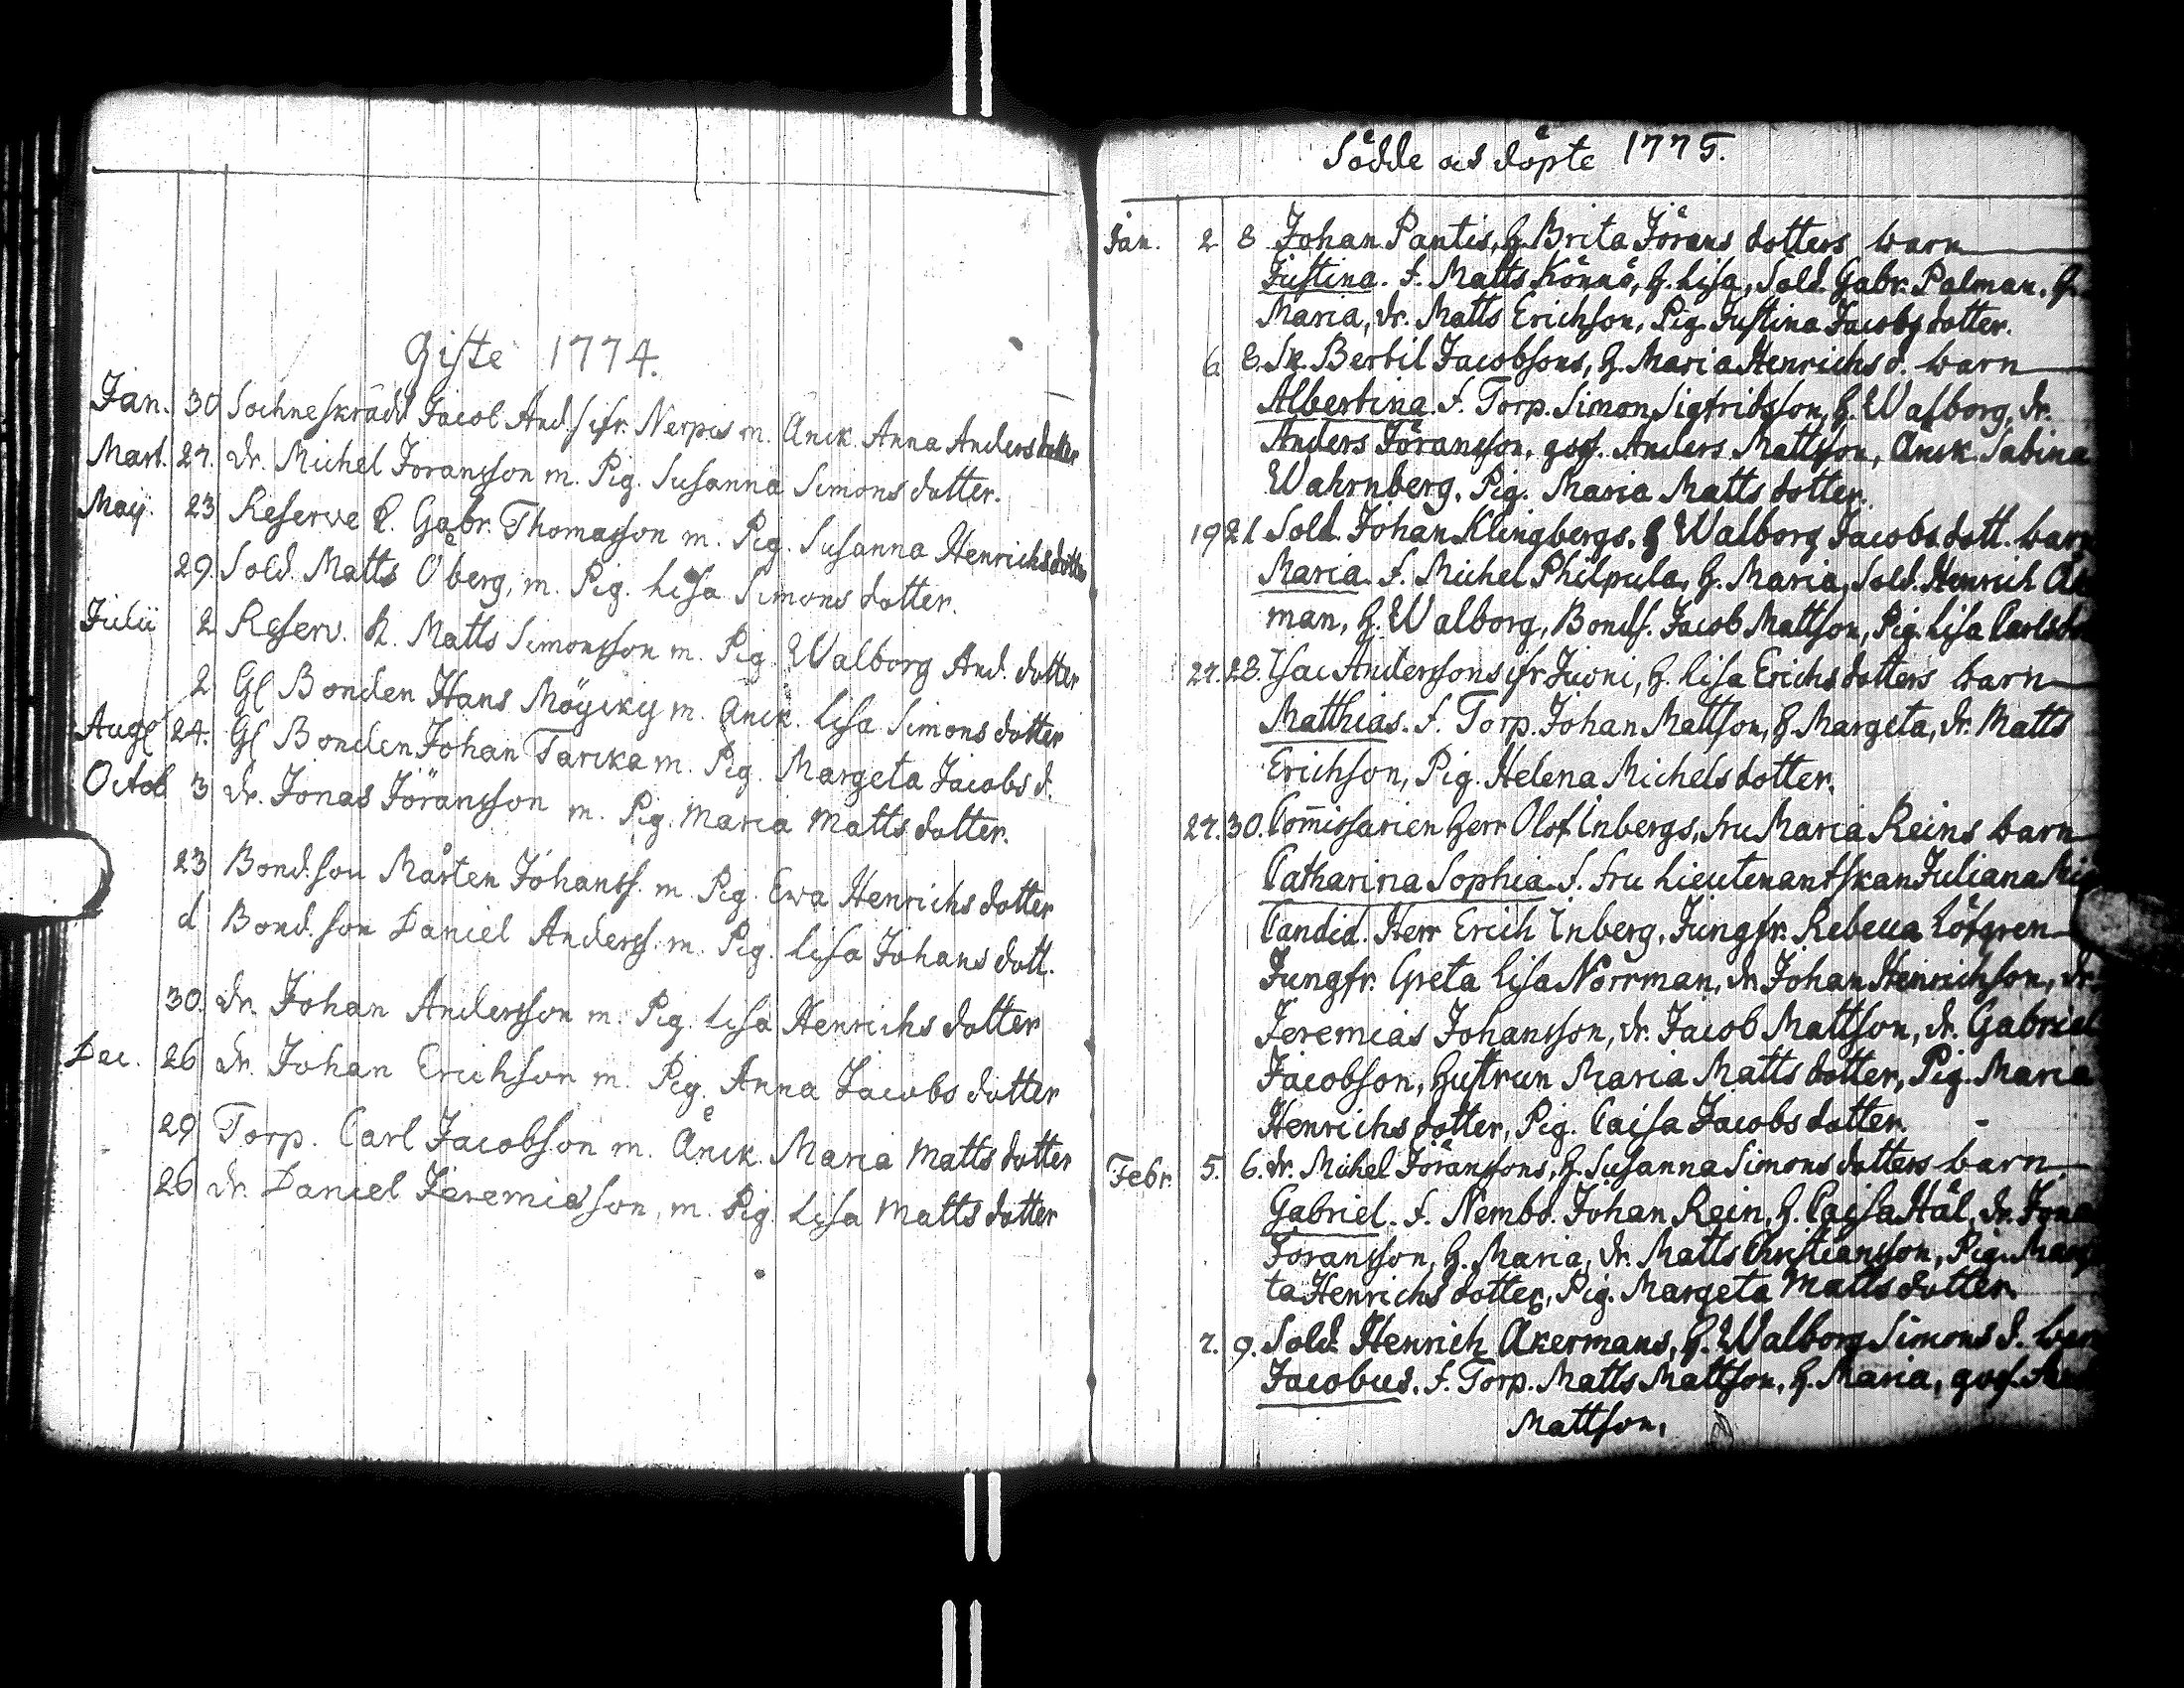 Gifte 1774.
Jan. 30 Sochneskrädd Jacob And.s ifr. Nerpes m. Änck. Anna Andersdotter
Mart. 27. dr. Michel Jöransson m. Pig. Susanna Simonsdotter.
Maij. 23 Reserve K. Gabr. Thomasson m. Pig. Susanna Henrichsdotter
29. Sold. Matts Öberg, m. Pig. Lisa Simons dotter.
Julii 2 Reserv. K. Matts Simonsson m. Pig. Walborg And. dotter
2 Gl Bonden Hans Möycky m. Änck. Lisa Simons dotter
Aug. 24. Gl Bonden Johan Tarcka m. Pig. Margeta Jacobs d.
Octob 3 dr. Jonas Jöransson m. Pig. Maria Matts dotter.
23 Bond.son Mårten Johanss. m. Pig. Ewa Henrichs dotter
d Bond.son Daniel Anderss. m. Pig. Lisa Johans dott.
30. dr. Johan Andersson m. Pig. Lisa Henrichs dotter
Dec. 26 dr. Johan Erichson m. Pig. Anna Jacobs dotter
29 Torp. Carl Jacobson m. Änck. Maria Matts dotter
26 dr. Daniel Jeremiasson, m. Pig. Lisa Matts dotter
Födde och döpte 1775.
Jan. 2 8 Johan Pantis, H. Brita Jörans dotters barn
Justina. f. Matts Könnö, H. Lisa, Sold. Gabr. Palman. H.
Maria, dr. Matts Erichson, Pig. Justina Jacobs dotter.
6 8. Sk. Bertil Jacobsons, H. Maria Henrichs d. barn
Albertina. f. Torp. Simon Sigfridsson, H. Walborg, dr.
Anders Jöransson, goss. Anders Mattsson, Änck. Sabina
Wahrnberg, Pig. Maria Matts dotter.
19 21 Sold. Johan Klingbergs, H Walborg Jacobs dott. barn
Maria. f. Michel Philpula, H. Maria, Sold. Henrich Åker
man, H. Walborg, Bonds. Jacob Mattson, Pig. Lisa Carlsdo
27. 28. Isac Anderssons ifr Juoni, H. Lisa Erichs dotters barn
Matthias. f. Torp. Johan Mattson, H. Margeta, dr. Matts
Erichson, Pig. Helena Michels dotter.
27. 30. Commissarien Herr Olof Enbergs, fru Maria Reins barn
Catharina Sophia. f. fru Lieutenantskan Juliana
Candid. Herr Erich Enberg, Jungfr. Rebecca Löfgren
Jungfr. Greta Lisa Norrman, dr. Johan Henrichson, dr.
Jeremias Johansson, dr. Jacob Mattson, dr. Gabriel
Jacobson, Hustrun Maria Matts dotter, Pig. Maria
Henrichs dotter, Pig. Caisa Jacobs dotter.
Febr. 5. 6. dr. Michel Jöranssons, H. Susanna Simons dotters barn
Gabriel. f. Nembd. Johan Rein, H. Caisa Häl, dr. Jona
Jöransson, H. Maria, dr. Matts Christiansson, Pig. Marge
ta Henrichs dotter, Pig. Margeta Matts dotter.
7. 9. Sold. Henrich Åkermans, H. Walborg Simons d. barn
Jacobus. f. Torp. Matts Mattson, H. Maria, goss.
Mattson,